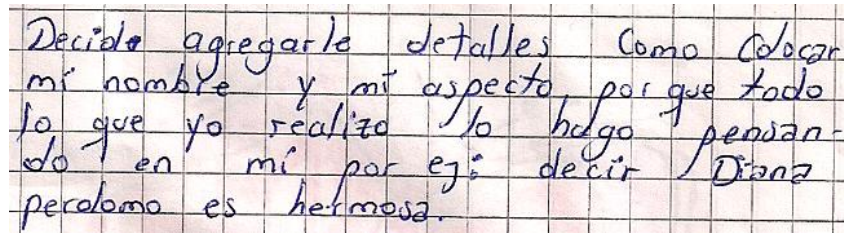 Decido agregarle detalles Como Colocar
mi nombre y mi aspecto, por que todo
lo que yo realizo lo hago pensan-
do en mi por ej: decir Diana
perdomo es hermosa.